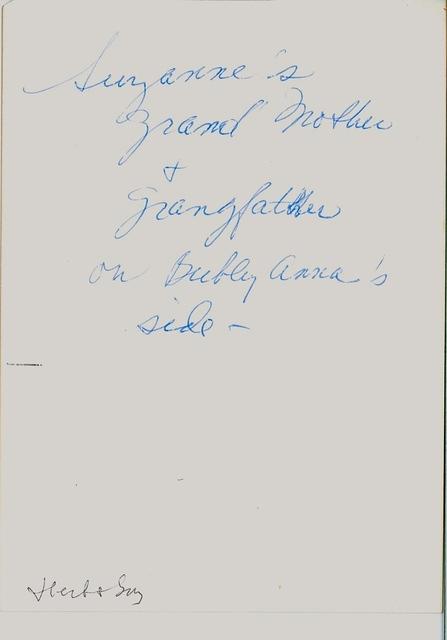 Suzanne's
Grand Mother
+
Grangfather
on Bubby Anna's
side -
Herb &